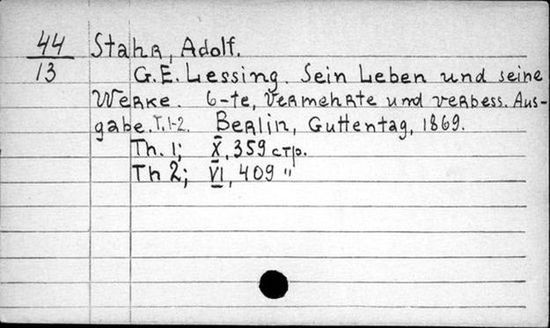 44 Stahr, Adolf.
13 G. E. Lessing. Sein Leben und seine
Werke. 6-te, vermehrte und verbess. Aus-
gabe. T. 1-2. Berlin, Guttentag, 1869.
Th. 1; X, 359 стр.
Th 2; VI, 409 "